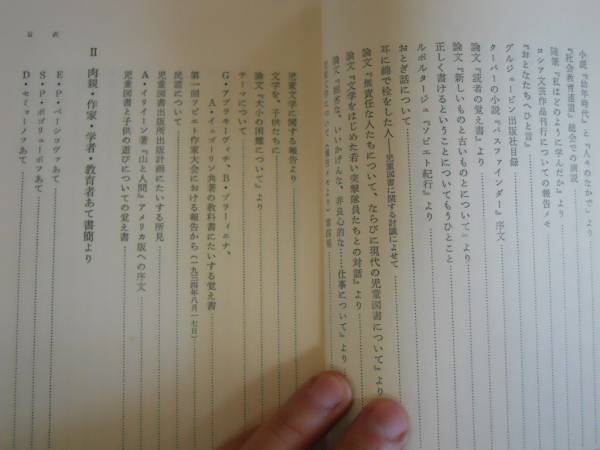 小説『幼年時代』と『人々のなかで』より
『社会教育逍遥』総会での演説
随筆『私はどのように学んだか』より
ロシア文芸作品刊行についての報告メモ
『おとなたちへひと言』
グルジェービン出版社目録
クーパーの小説『パスファインダー』序文
論文『読者の覚え書』より
論文『新しいものと古いものとについて』より
正しく書けるということについてもうひとこと
ルポルタージュ『ソビエト紀行』より
おとぎ話について
耳に綿で栓をした人――児童図書に関する討議によせて
論文『無責任な人たちについて、ならびに現代の児童図書について』より
論文『文学をはじめた若い突撃隊員たちとの対話』より
論文『無害な、いいかげんな、非良心的な……仕事について』より
児童文学に関する報告より
文学を、子供たちに
論文『大小の困難について』より
テーマについて
G・アブリキーディチ、B・プラーヴィエナ、
A・イェゴーリン共著の教科書にたいする覚え書
第一回ソビエト作家大会における報告から(一九三四年八月一七日)
民謡について
児童図書出版所出版計画にたいする所見
A・イリイーン著『山と人間』アメリカ版への序文
児童図書と子供の遊びについての覚え書
II 肉親・作家・学者・教育者あて書簡より
E・P・ペーシコヴァあて
S・P・ポリューボフあて
D・セミョーノフあて
目 次